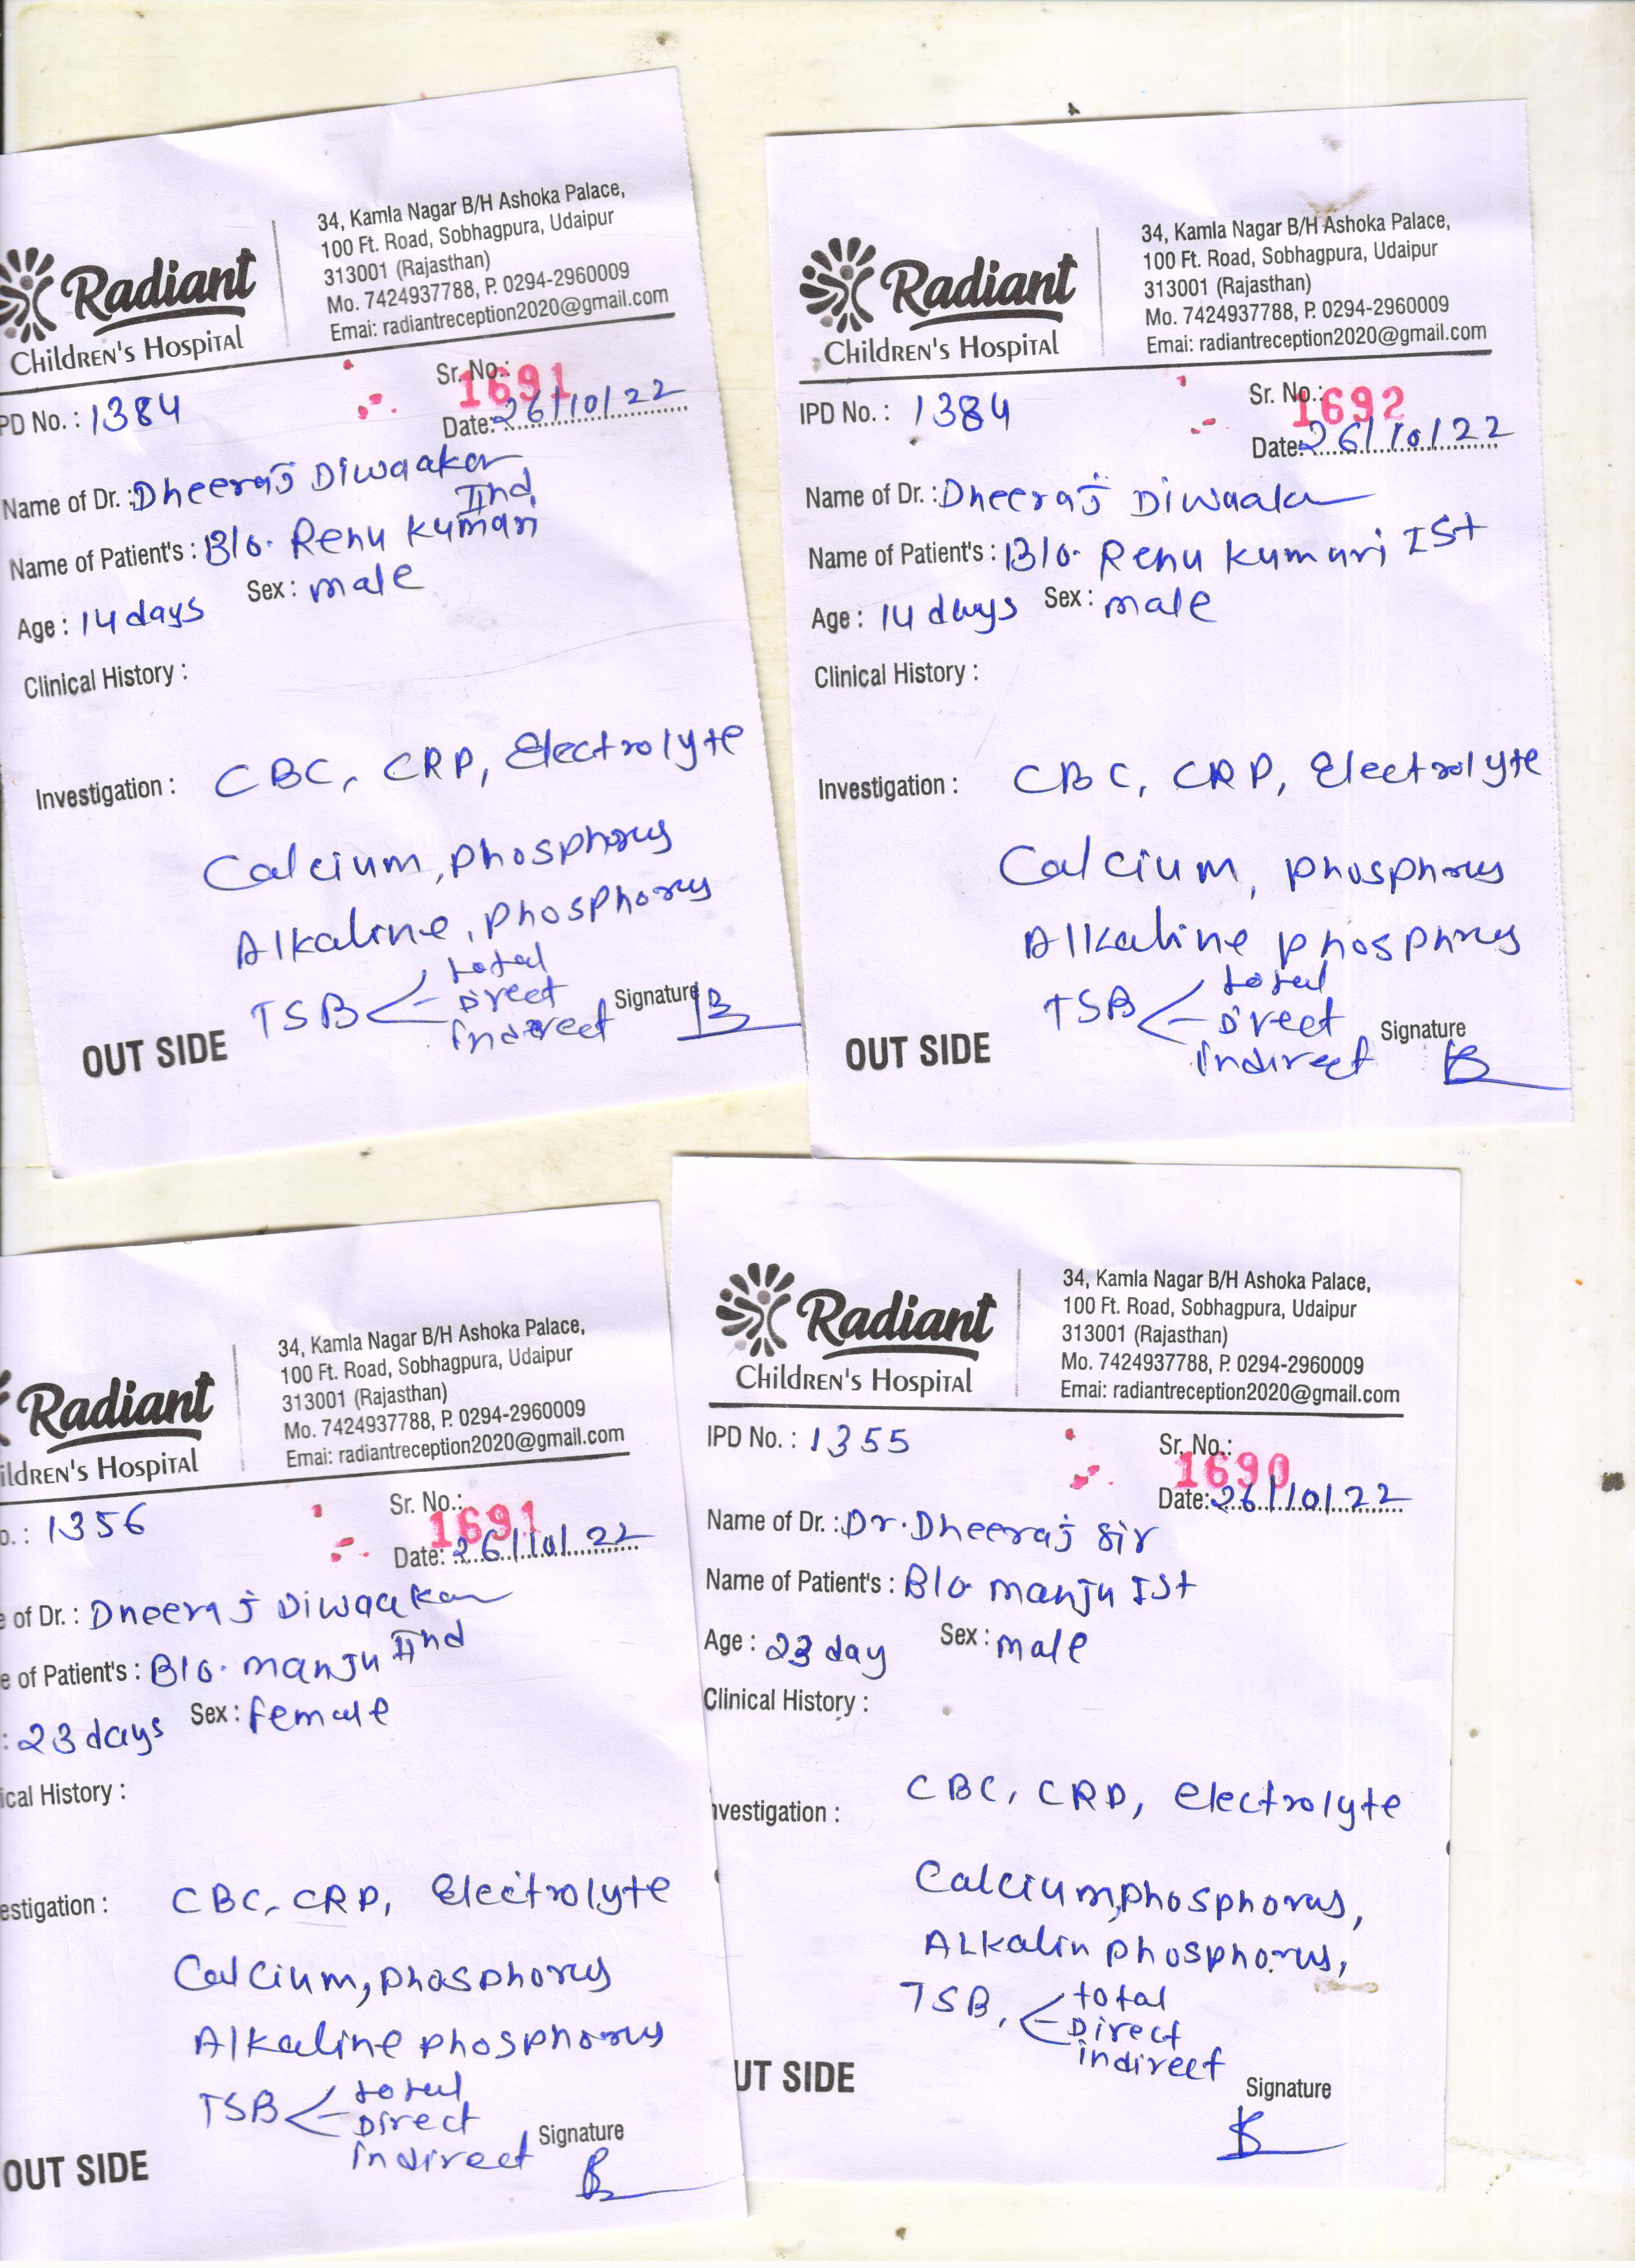 34, Kamla Nagar B/H Ashoka Palace,
100 Ft. Road, Sobhagpura, Udaipur
313001 (Rajasthan)
Mo. 7424937788, P. 0294-2960009
Emai: radiantreception2020@gmail.com
Radiant
Children's Hospital
Sr. No.: 1691
PD No. : 1384
Date: 26/10/22
Name of Dr. : Dheeraj Diwaakar
IInd
Name of Patient's : B/o. Renu Kumari
Age : 14 days Sex : male
Clinical History :
Investigation : CBC, CRP, Electrolyte
Calcium, phosphorus
Alkaline, phosphorus
TSB total
Direct
indirect
Signature
OUT SIDE
34, Kamla Nagar B/H Ashoka Palace,
100 Ft. Road, Sobhagpura, Udaipur
313001 (Rajasthan)
Mo. 7424937788, P. 0294-2960009
Emai: radiantreception2020@gmail.com
Radiant
Children's Hospital
Sr. No.: 1692
IPD No. : 1384
Date: 26/10/22
Name of Dr. : Dheeraj Diwaakar
Name of Patient's : B/o. Renu Kumari Ist
Age : 14 days Sex : male
Clinical History :
Investigation : CBC, CRP, Electrolyte
Calcium, phosphorus
Alkaline phosphrus
TSB total
Direct
indirect
Signature
OUT SIDE
34, Kamla Nagar B/H Ashoka Palace,
100 Ft. Road, Sobhagpura, Udaipur
313001 (Rajasthan)
Mo. 7424937788, P. 0294-2960009
Emai: radiantreception2020@gmail.com
Radiant
ildren's Hospital
Sr. No.: 1691
o. : 1356
Date: 26/10/22
e of Dr. : Dheeraj Diwaakar
e of Patient's : B/o. manju IInd
: 23 days Sex : female
ical History :
estigation : CBC, CRP, Electrolyte
Calcium, phosphorus
Alkaline phosphorus
TSB total
Direct
indirect
Signature
OUT SIDE
34, Kamla Nagar B/H Ashoka Palace,
100 Ft. Road, Sobhagpura, Udaipur
313001 (Rajasthan)
Mo. 7424937788, P. 0294-2960009
Emai: radiantreception2020@gmail.com
Radiant
Children's Hospital
Sr. No.: 1690
IPD No. : 1355
Date: 26/10/22
Name of Dr. : Dr. Dheeraj sir
Name of Patient's : B/o. manju Ist
Age : 23 day Sex : male
Clinical History :
nvestigation : CBC, CRP, electrolyte
Calcium, phosphorus,
ALkalin phosphorus,
TSB, total
Direct
indirect
Signature
UT SIDE